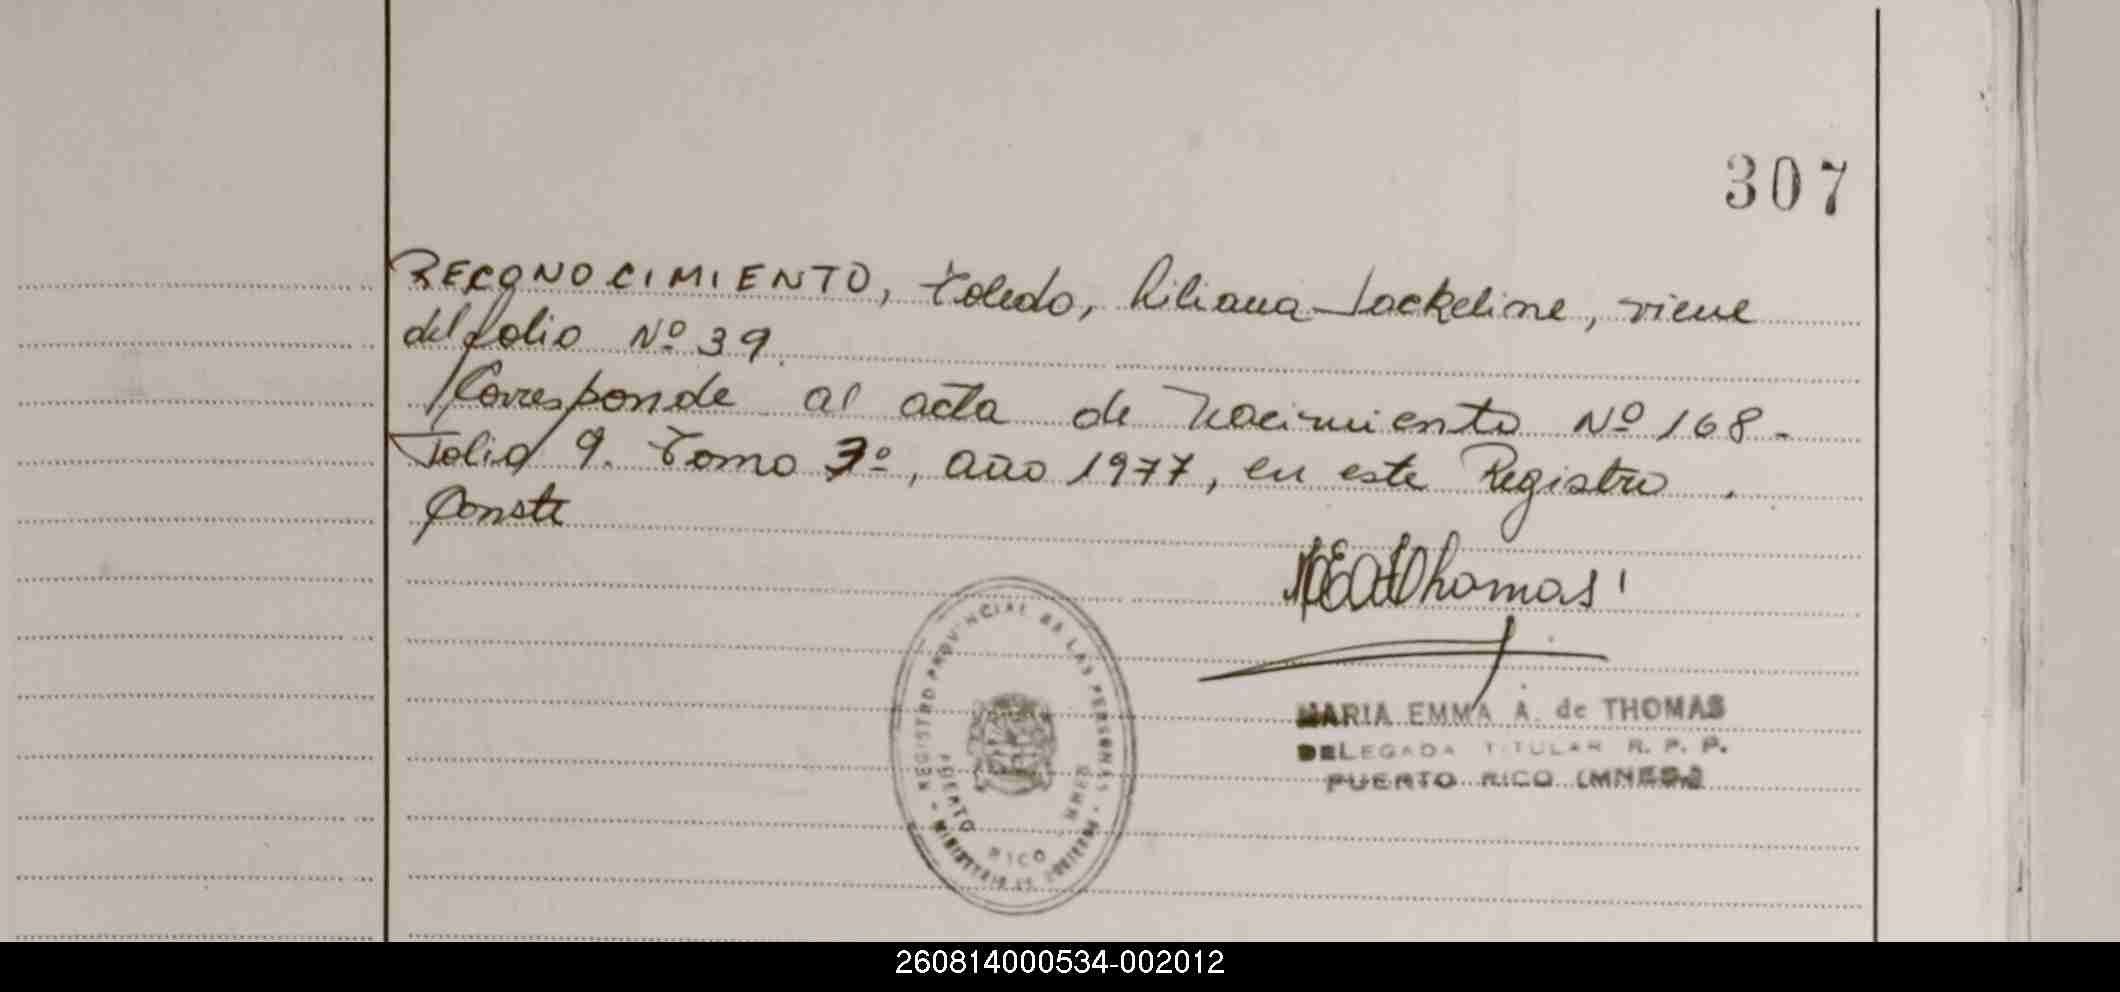 307
RECONOCIMIENTO, Toledo, Liliana Jackeline, viene
del folio Nº 39.
Corresponde al acta de Nacimiento Nº 168-
Folio 9. Tomo 3º, año 1977, en este Registro.
Conste
Thomas
MARIA EMMA A. de THOMAS
DELEGADA TITULAR R. P. P.
PUERTO RICO (MNES.)
REGISTRO PROVINCIAL DE LAS PERSONAS - MINISTERIO DE GOBIERNO
PUERTO RICO
260814000534-002012